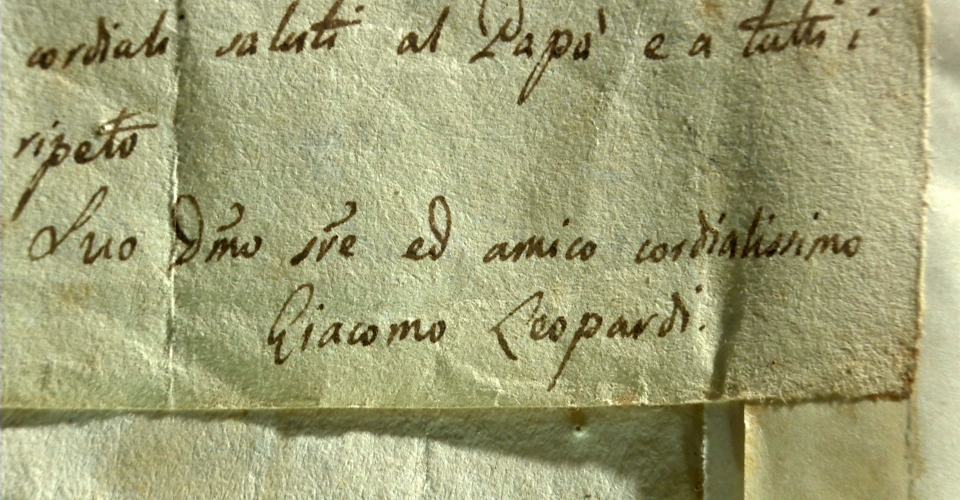 cordiali saluti al Papà e a tutti i
ripeto
Suo Dmo sre ed amico cordialissimo
Giacomo Leopardi.